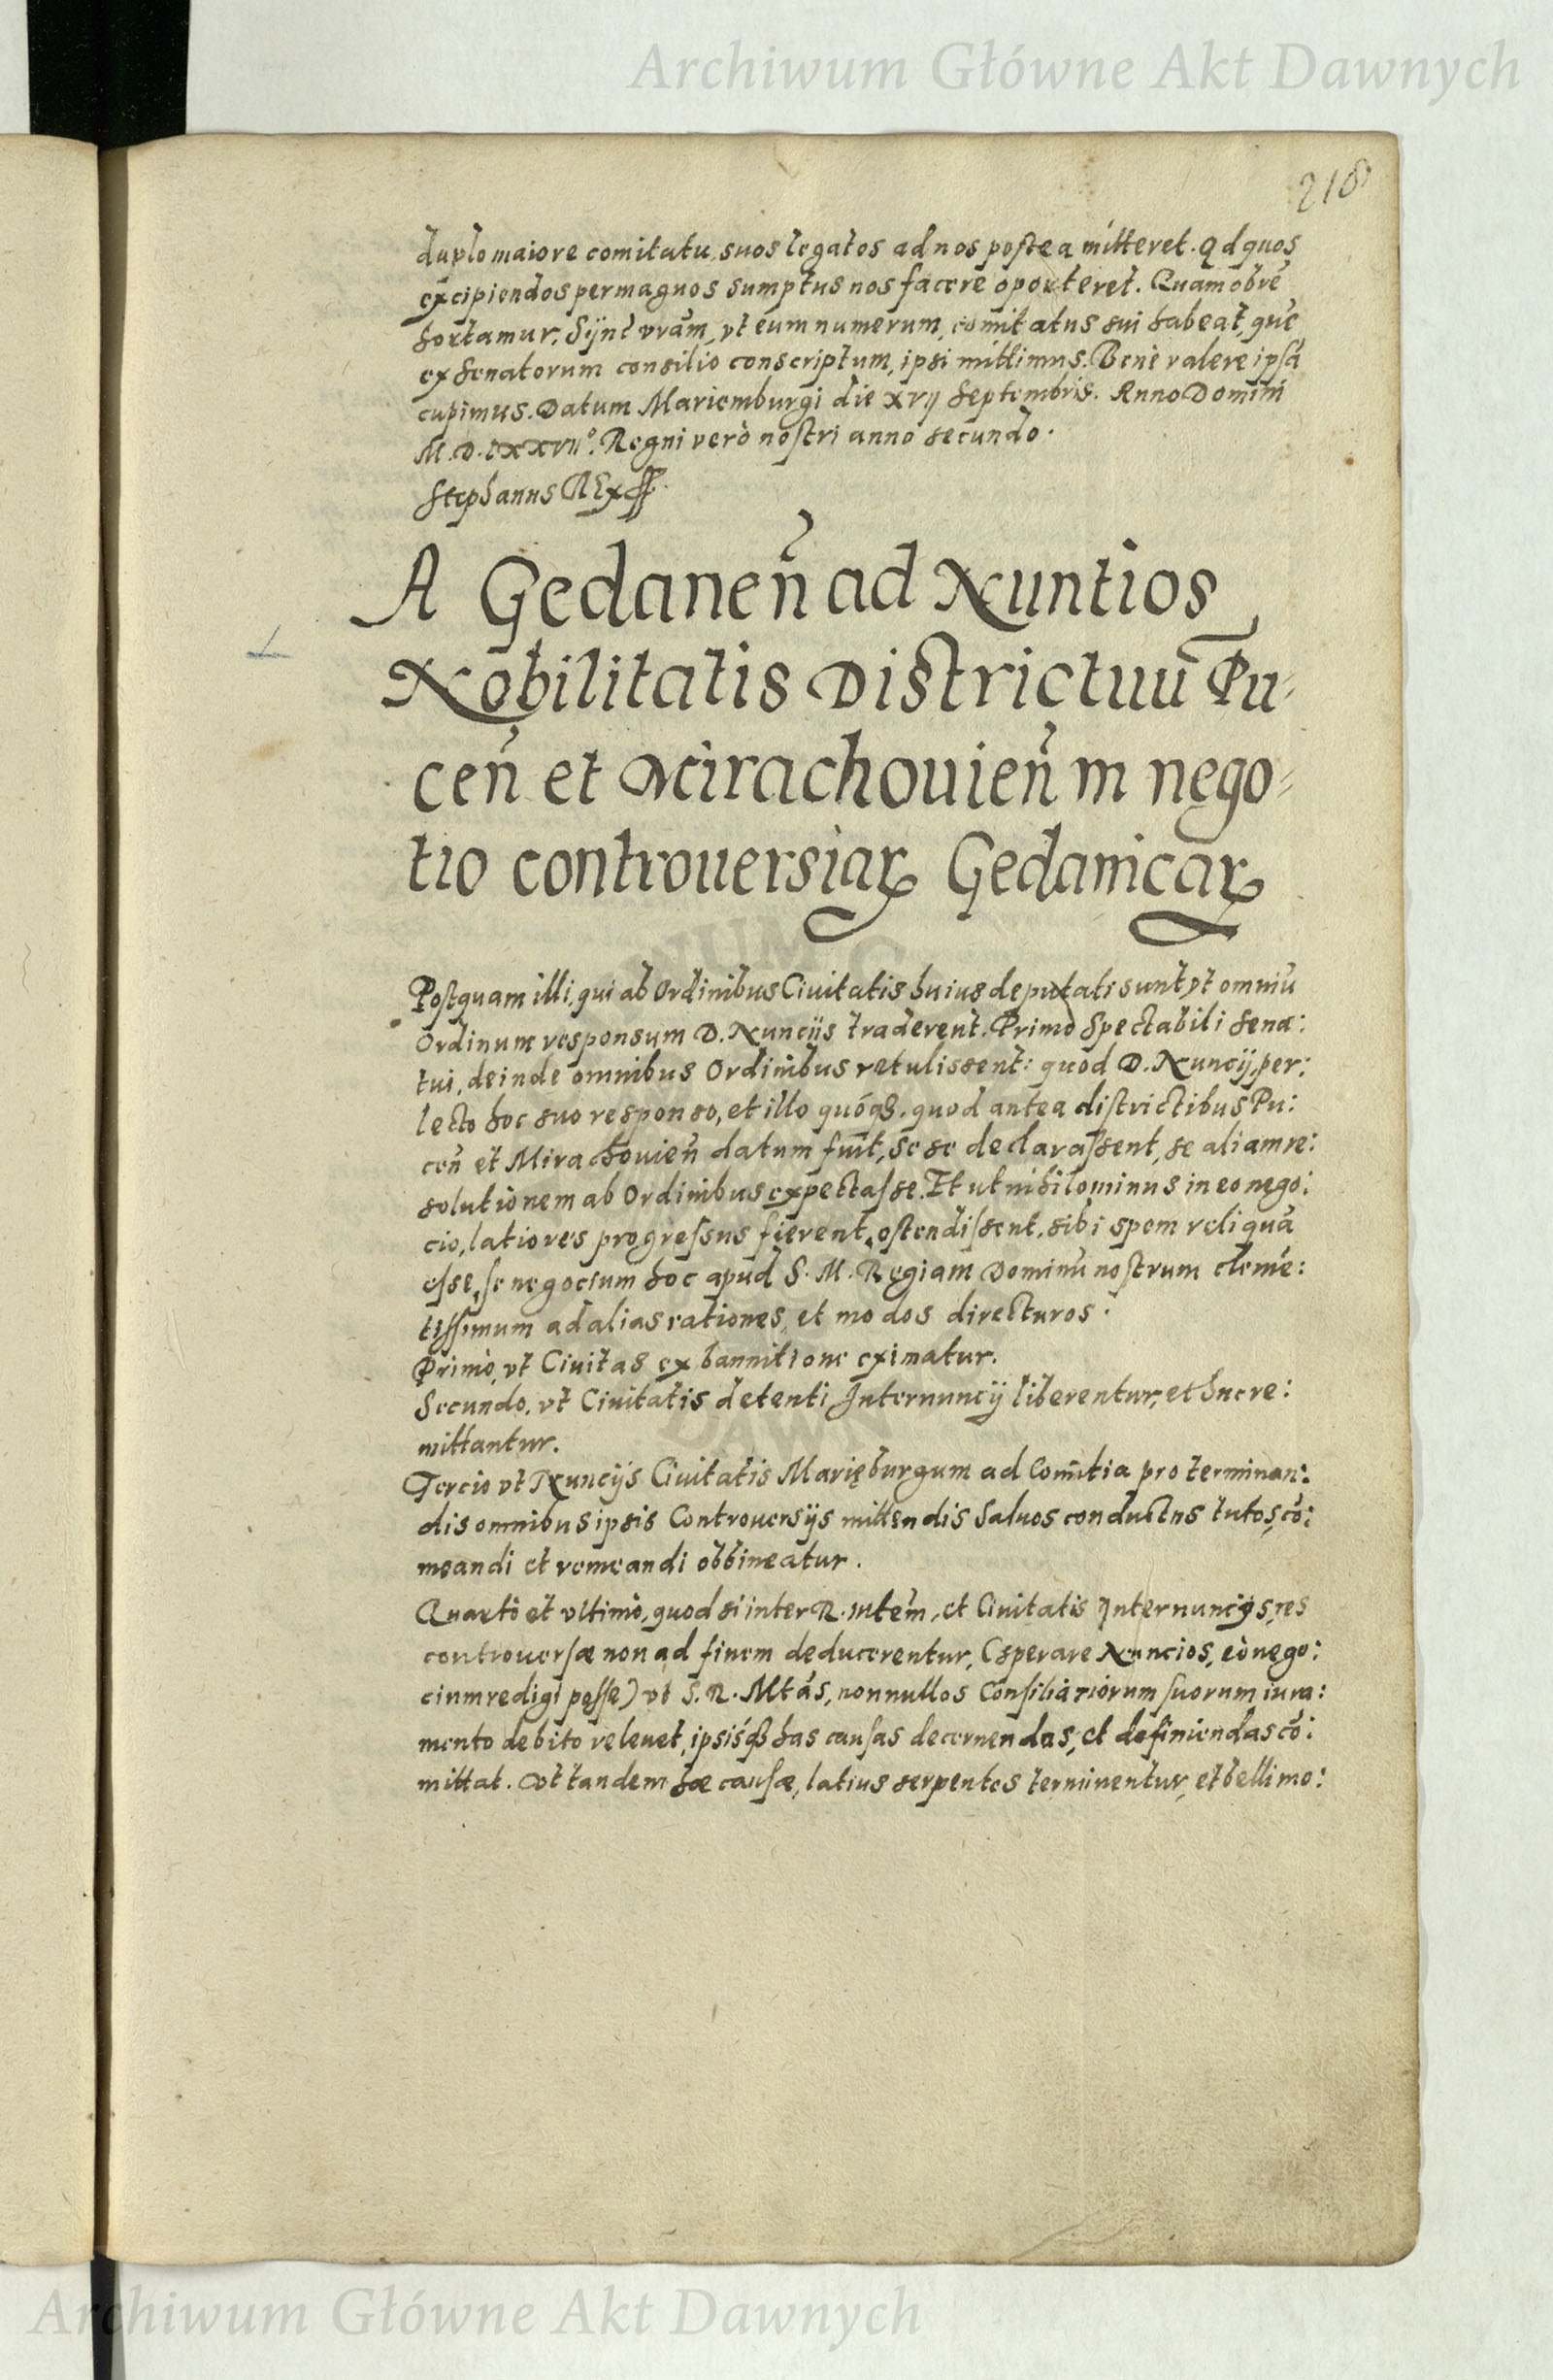 Archiwum Główne Akt Dawnych
218
duplo maiore comitatu, suos legatos ad nos postea mitteret. Qd quos
excipiendos permagnos sumptus nos facere oporteret. Quamobrē
hortamur, Sỹnt vram, vt eum numerum, comitatus sui habeat, quē
ex Senatorum consilio conscriptum, ipsi mittimus. Benè valere ipsā
cupimus. Datum Mariemburgi die xvij Septembris. Anno Domini
M.D.LXXVII°. Regni verò nostri anno secundo.
Stephanus REx
A Gedaneñ ad Nuntios
Nobilitatis Districtuū Pu-
ceñ et Mirachouieñ in nego-
tio controuersiaꝝ Gedanicaꝝ
Postquam illi, qui ab Ordinibus Ciuitatis huius deputati sunt vt omniū
Ordinum responsum D. Nuncijs traderent. Primo Spectabili Sena:
tui, deinde omnibus Ordinibus retulissent: quod D. Nuncij, per:
lecto hoc suo responso, et illo quóqꝫ. quod antea districtibus Pu:
ceñ et Mirachouieñ datum fuit, Se se declarassent, se aliam re:
solutionem ab Ordinibus expectasse. Et ut nihilominus in eo nego:
cio, latiores progressus fierent, ostendissent, sibi spem reliquā
esse, se negocium hoc apud S. M. Regiam Dominū nostrum clemē:
tissimum ad alias rationes, et modos directuros.
Primò, vt Ciuitas ex bannitione eximatur.
Secundo, vt Ciuitatis detenti Internuncij liberentur, et huc re:
mittantur.
Tercio vt Nuncijs Ciuitatis Marięburgum ad Comitia pro terminan:
dis omnibus ipsis Controuersijs mittendis Saluos conductus tutos, cō:
meandi et remeandi obtineatur.
Quartò et vltimò, quod si inter R. Mtem, et Ciuitatis Internuncios, res
controuersæ non ad finem deducerentur, (sperare Nuncios, eò nego:
cium redigi posse) vt S. R. Mtas, nonnullos Consiliariorum suorum iura:
mento debito releuet, ipsisqꝫ has causas decernendas, et definiendas cō:
mittat. Vt tandem hæ causæ, latius serpentes terminentur, et belli mo:
Archiwum Główne Akt Dawnych